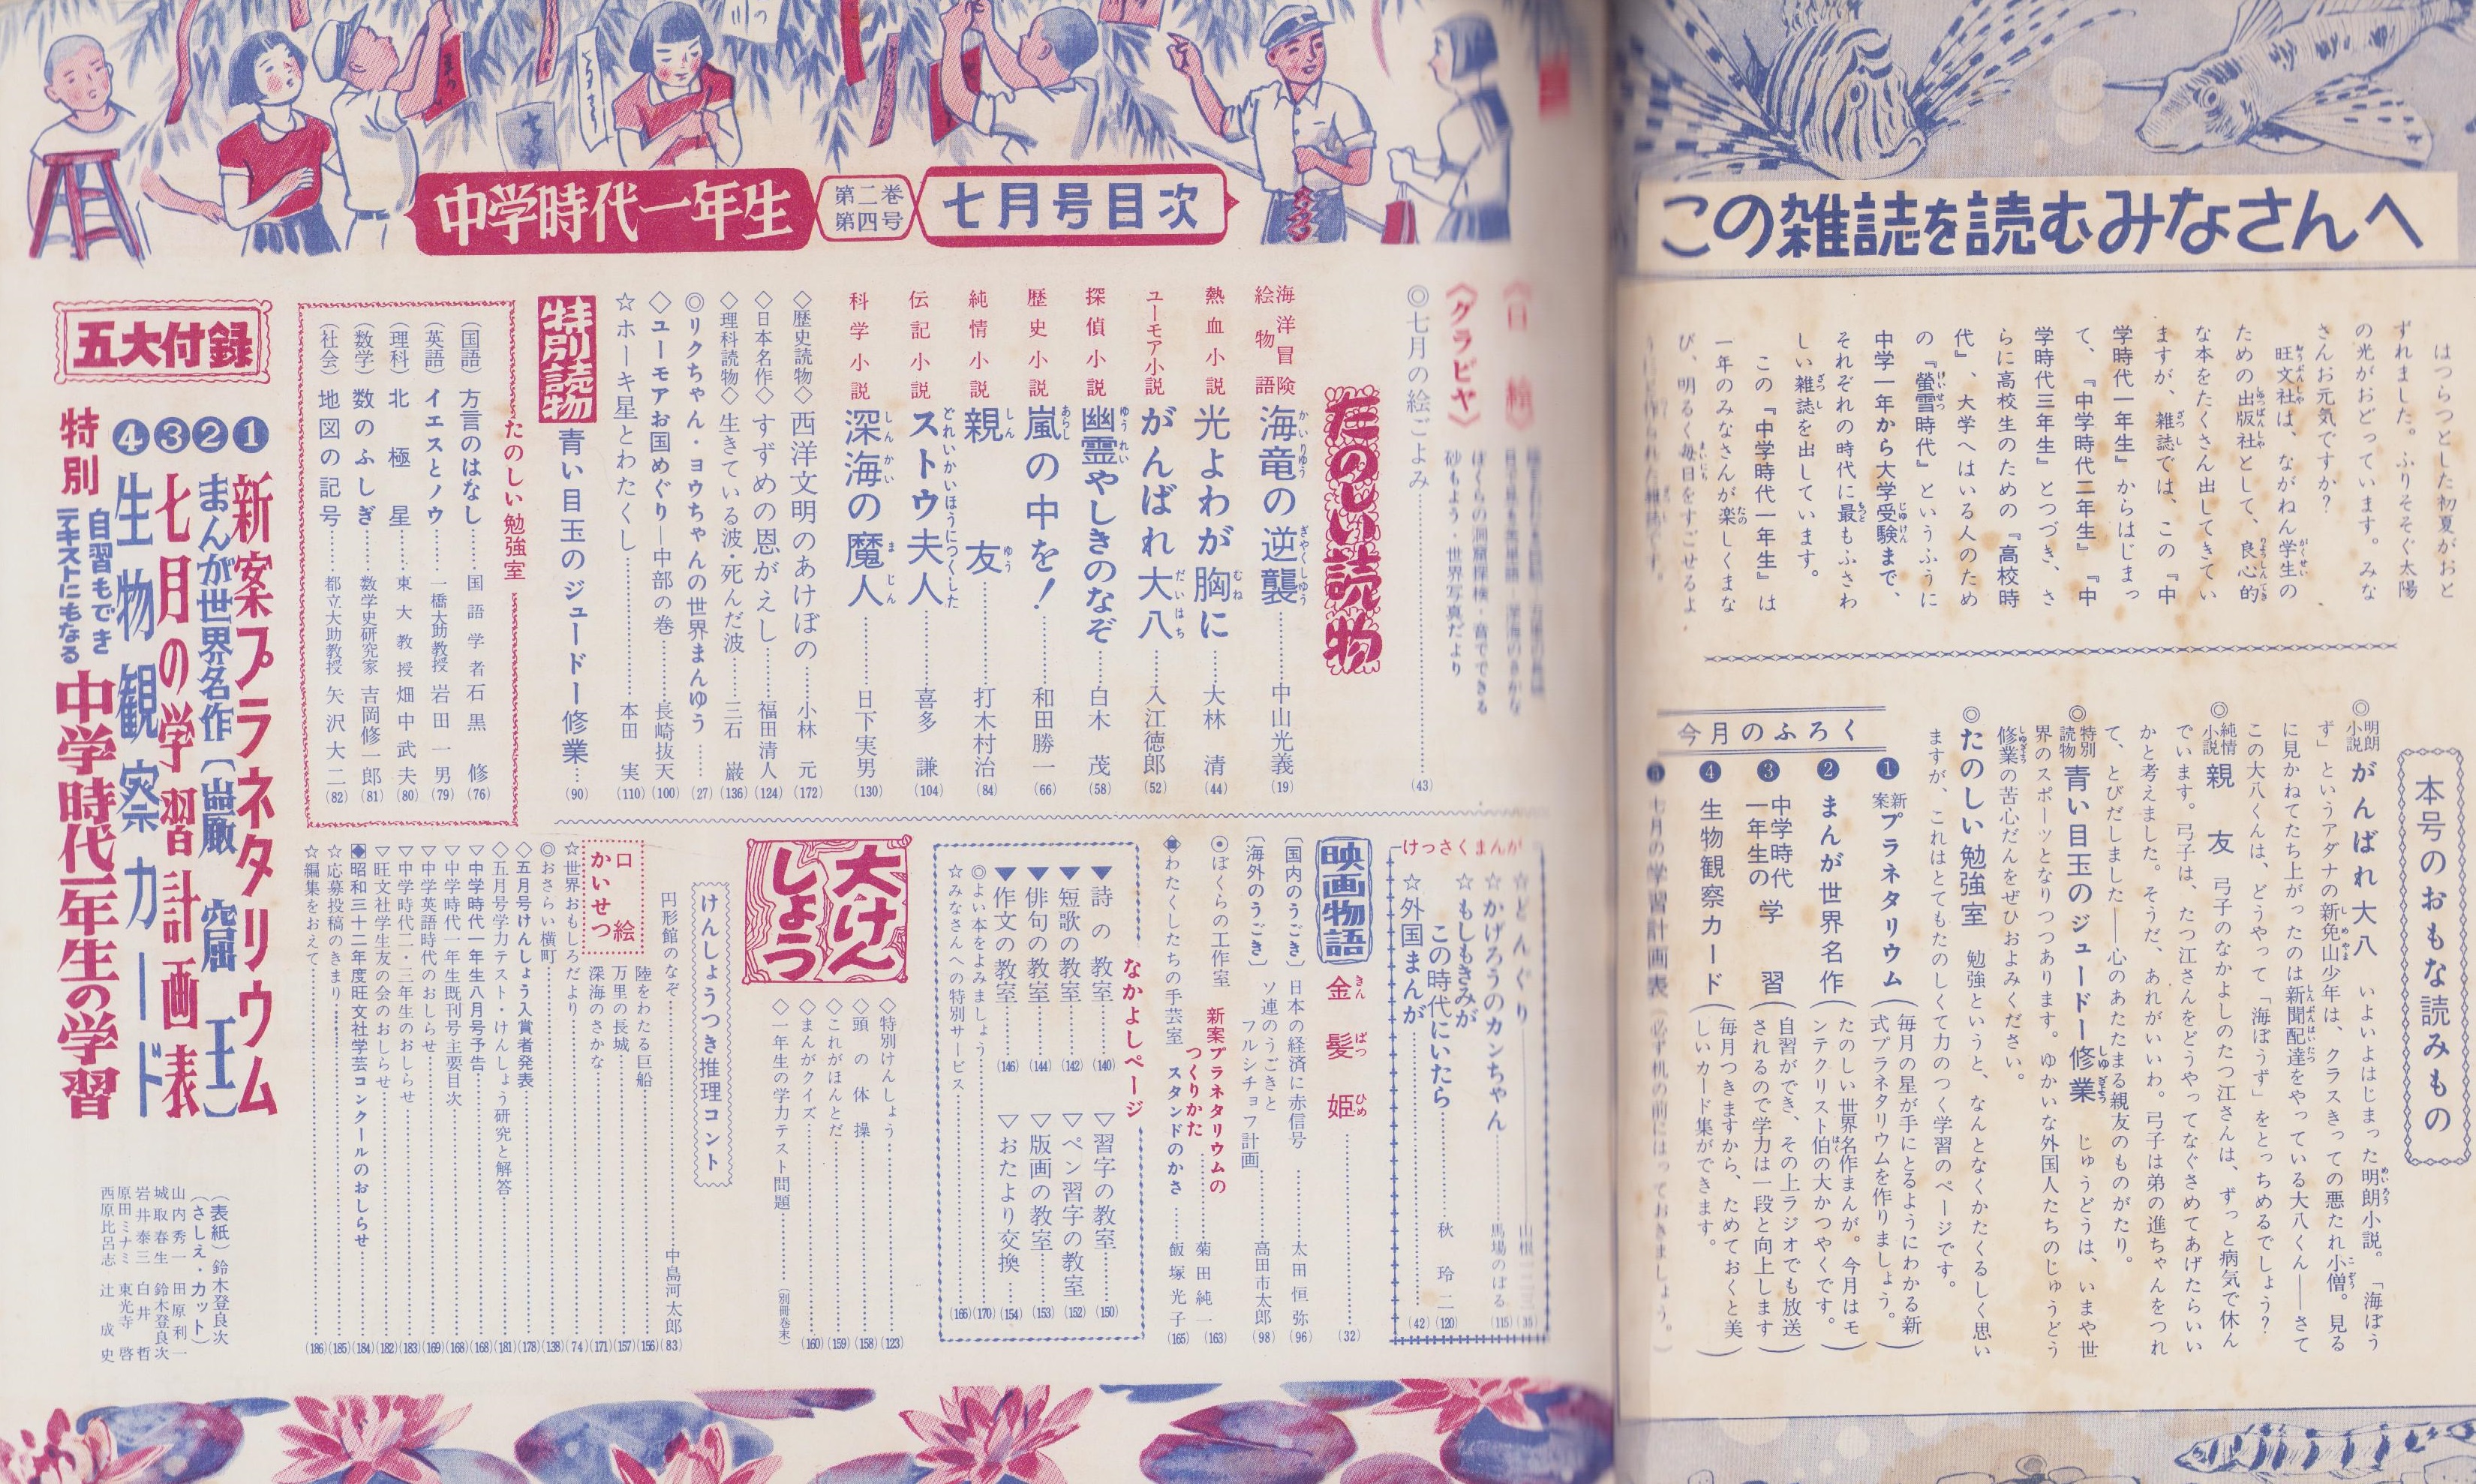 この雑誌を読むみなさんへ
はつらつとした初夏がおと
ずれました。ふりそそぐ太陽
の光がおどっています。みな
さんお元気ですか?
旺文社は、ながねん学生の
ための出版社として、良心的
な本をたくさん出してきてい
ますが、雑誌では、この『中
学時代一年生』からはじまっ
て、『中学時代二年生』『中
学時代三年生』とつづき、さ
らに高校生のための『高校時
代』、大学へはいる人のため
の『螢雪時代』というふうに
中学一年から大学受験まで、
それぞれの時代に最もふさわ
しい雑誌を出しています。
この『中学時代一年生』は
一年のみなさんが楽しくまな
び、明るく毎日をすごせるよ
本号のおもな読みもの
◎明朗小説 がんばれ大八 いよいよはじまった明朗小説。「海ぼう
ず」というアダナの新免山少年は、クラスきっての悪たれ小僧。見る
に見かねてたち上がったのは新聞配達をやっている大八くん――さて
この大八くんは、どうやって「海ぼうず」をとっちめるでしょう?
◎純情小説 親友 弓子のなかよしのたつ江さんは、ずっと病気で休ん
でいます。弓子は、たつ江さんをどうやってなぐさめてあげたらいい
かと考えました。そうだ、あれがいいわ。弓子は弟の進ちゃんをつれ
て、とびだしました――心のあたたまる親友のものがたり。
◎特別読物 青い目玉のジュードー修業 じゅうどうは、いまや世
界のスポーツとなりつつあります。ゆかいな外国人たちのじゅうどう
修業の苦心だんをぜひおよみください。
◎たのしい勉強室 勉強というと、なんとなくかたくるしく思い
ますが、これはとてもたのしくて力のつく学習のページです。
今月のふろく
❶新案プラネタリウム(毎月の星が手にとるようにわかる新
式プラネタリウムを作りましょう。)
❷まんが世界名作(たのしい世界名作まんが。今月はモ
ンテクリスト伯の大かつやくです。)
❸中学時代一年生の学習(自習ができ、その上ラジオでも放送
されるので学力は一段と向上します)
❹生物観察カード(毎月つきますから、ためておくと美
しいカード集ができます。)
❺七月の学習計画表(必ず机の前にはっておきましょう。)
中学時代一年生
第二巻
第四号
七月号目次
〈グラビヤ〉
砂もよう・世界写真だより
◎七月の絵ごよみ……(43)
たのしい読物
海洋冒険絵物語 海竜の逆襲……中山光義(19)
熱血小説 光よわが胸に……大林 清(44)
ユーモア小説 がんばれ大八……入江徳郎(52)
探偵小説 幽霊やしきのなぞ……白木 茂(58)
歴史小説 嵐の中を!……和田勝一(66)
純情小説 親友……打木村治(84)
伝記小説 どれいかいほうにつくした ストウ夫人……喜多 謙(104)
科学小説 深海の魔人……日下実男(130)
◇歴史読物◇西洋文明のあけぼの……小林 元(172)
◇日本名作◇すずめの恩がえし……福田清人(124)
◇理科読物◇生きている波・死んだ波……三石 巌(136)
◎リクちゃん・ヨウちゃんの世界まんゆう……(27)
◇ユーモアお国めぐり―中部の巻……長崎抜天(100)
☆ホーキ星とわたくし……本田 実(110)
特別読物 青い目玉のジュードー修業…(90)
たのしい勉強室
(国語)方言のはなし……国語学者 石黒 修(76)
(英語)イエスとノウ……一橋大助教授 岩田一男(79)
(理科)北極星……東大教授 畑中武夫(80)
(数学)数のふしぎ……数学史研究家 吉岡修一郎(81)
(社会)地図の記号……都立大助教授 矢沢大二(82)
けっさくまんが
☆どんぐり
☆かげろうのカンちゃん……馬場のぼる(115)
☆もしもきみが
この時代にいたら……秋 玲二(120)
☆外国まんが……(42)
映画物語 金髪姫……(32)
〔国内のうごき〕日本の経済に赤信号……太田恒弥(96)
〔海外のうごき〕ソ連のうごきと
フルシチョフ計画……高田市太郎(98)
◎ぼくらの工作室 新案プラネタリウムの
つくりかた……菊田純一(163)
◆わたくしたちの手芸室 スタンドのかさ……飯塚光子(165)
なかよしページ
▼詩の教室……(140)
▼短歌の教室……(142)
▼俳句の教室……(144)
▼作文の教室……(146)
▽習字の教室……(150)
▽ペン習字の教室(152)
▽版画の教室……(153)
▽おたより交換……(154)
◎よい本をよみましょう……(170)
☆みなさんへの特別サービス……(166)
大けんしょう
◇特別けんしょう……(123)
◇頭の体操……(158)
◇これがほんとだ……(159)
◇まんがクイズ……(160)
◇一年生の学力テスト問題……(別冊巻末)
けんしょうつき推理コント
円形館のなぞ……中島河太郎(83)
口絵かいせつ
陸をわたる巨船……(156)
万里の長城……(157)
深海のさかな……(171)
☆世界おもしろだより……(74)
◎おさらい横町……(138)
◇五月号けんしょう入賞者発表……(178)
◇五月号学力テスト・けんしょう研究と解答……(181)
▽中学時代一年生八月号予告……(168)
▽中学時代一年生既刊号主要目次……(168)
▽中学英語時代のおしらせ……(169)
▽中学時代二・三年生のおしらせ……(183)
▽旺文社学生友の会のおしらせ……(182)
◆昭和三十二年度旺文社学芸コンクールのおしらせ……(184)
☆応募投稿のきまり……(185)
☆編集をおえて……(186)
五大付録
❶新案プラネタリウム
❷まんが世界名作〔巌窟王〕
❸七月の学習計画表
❹生物観察カード
特別 自習もでき
テキストにもなる 中学時代一年生の学習
(表紙)鈴木登良次
(さしえ・カット)
山内秀一 田原利一
城取春生 鈴木登良次
岩井泰三 白井 哲
原田ミナミ 東光寺 啓
西原比呂志 辻 成史